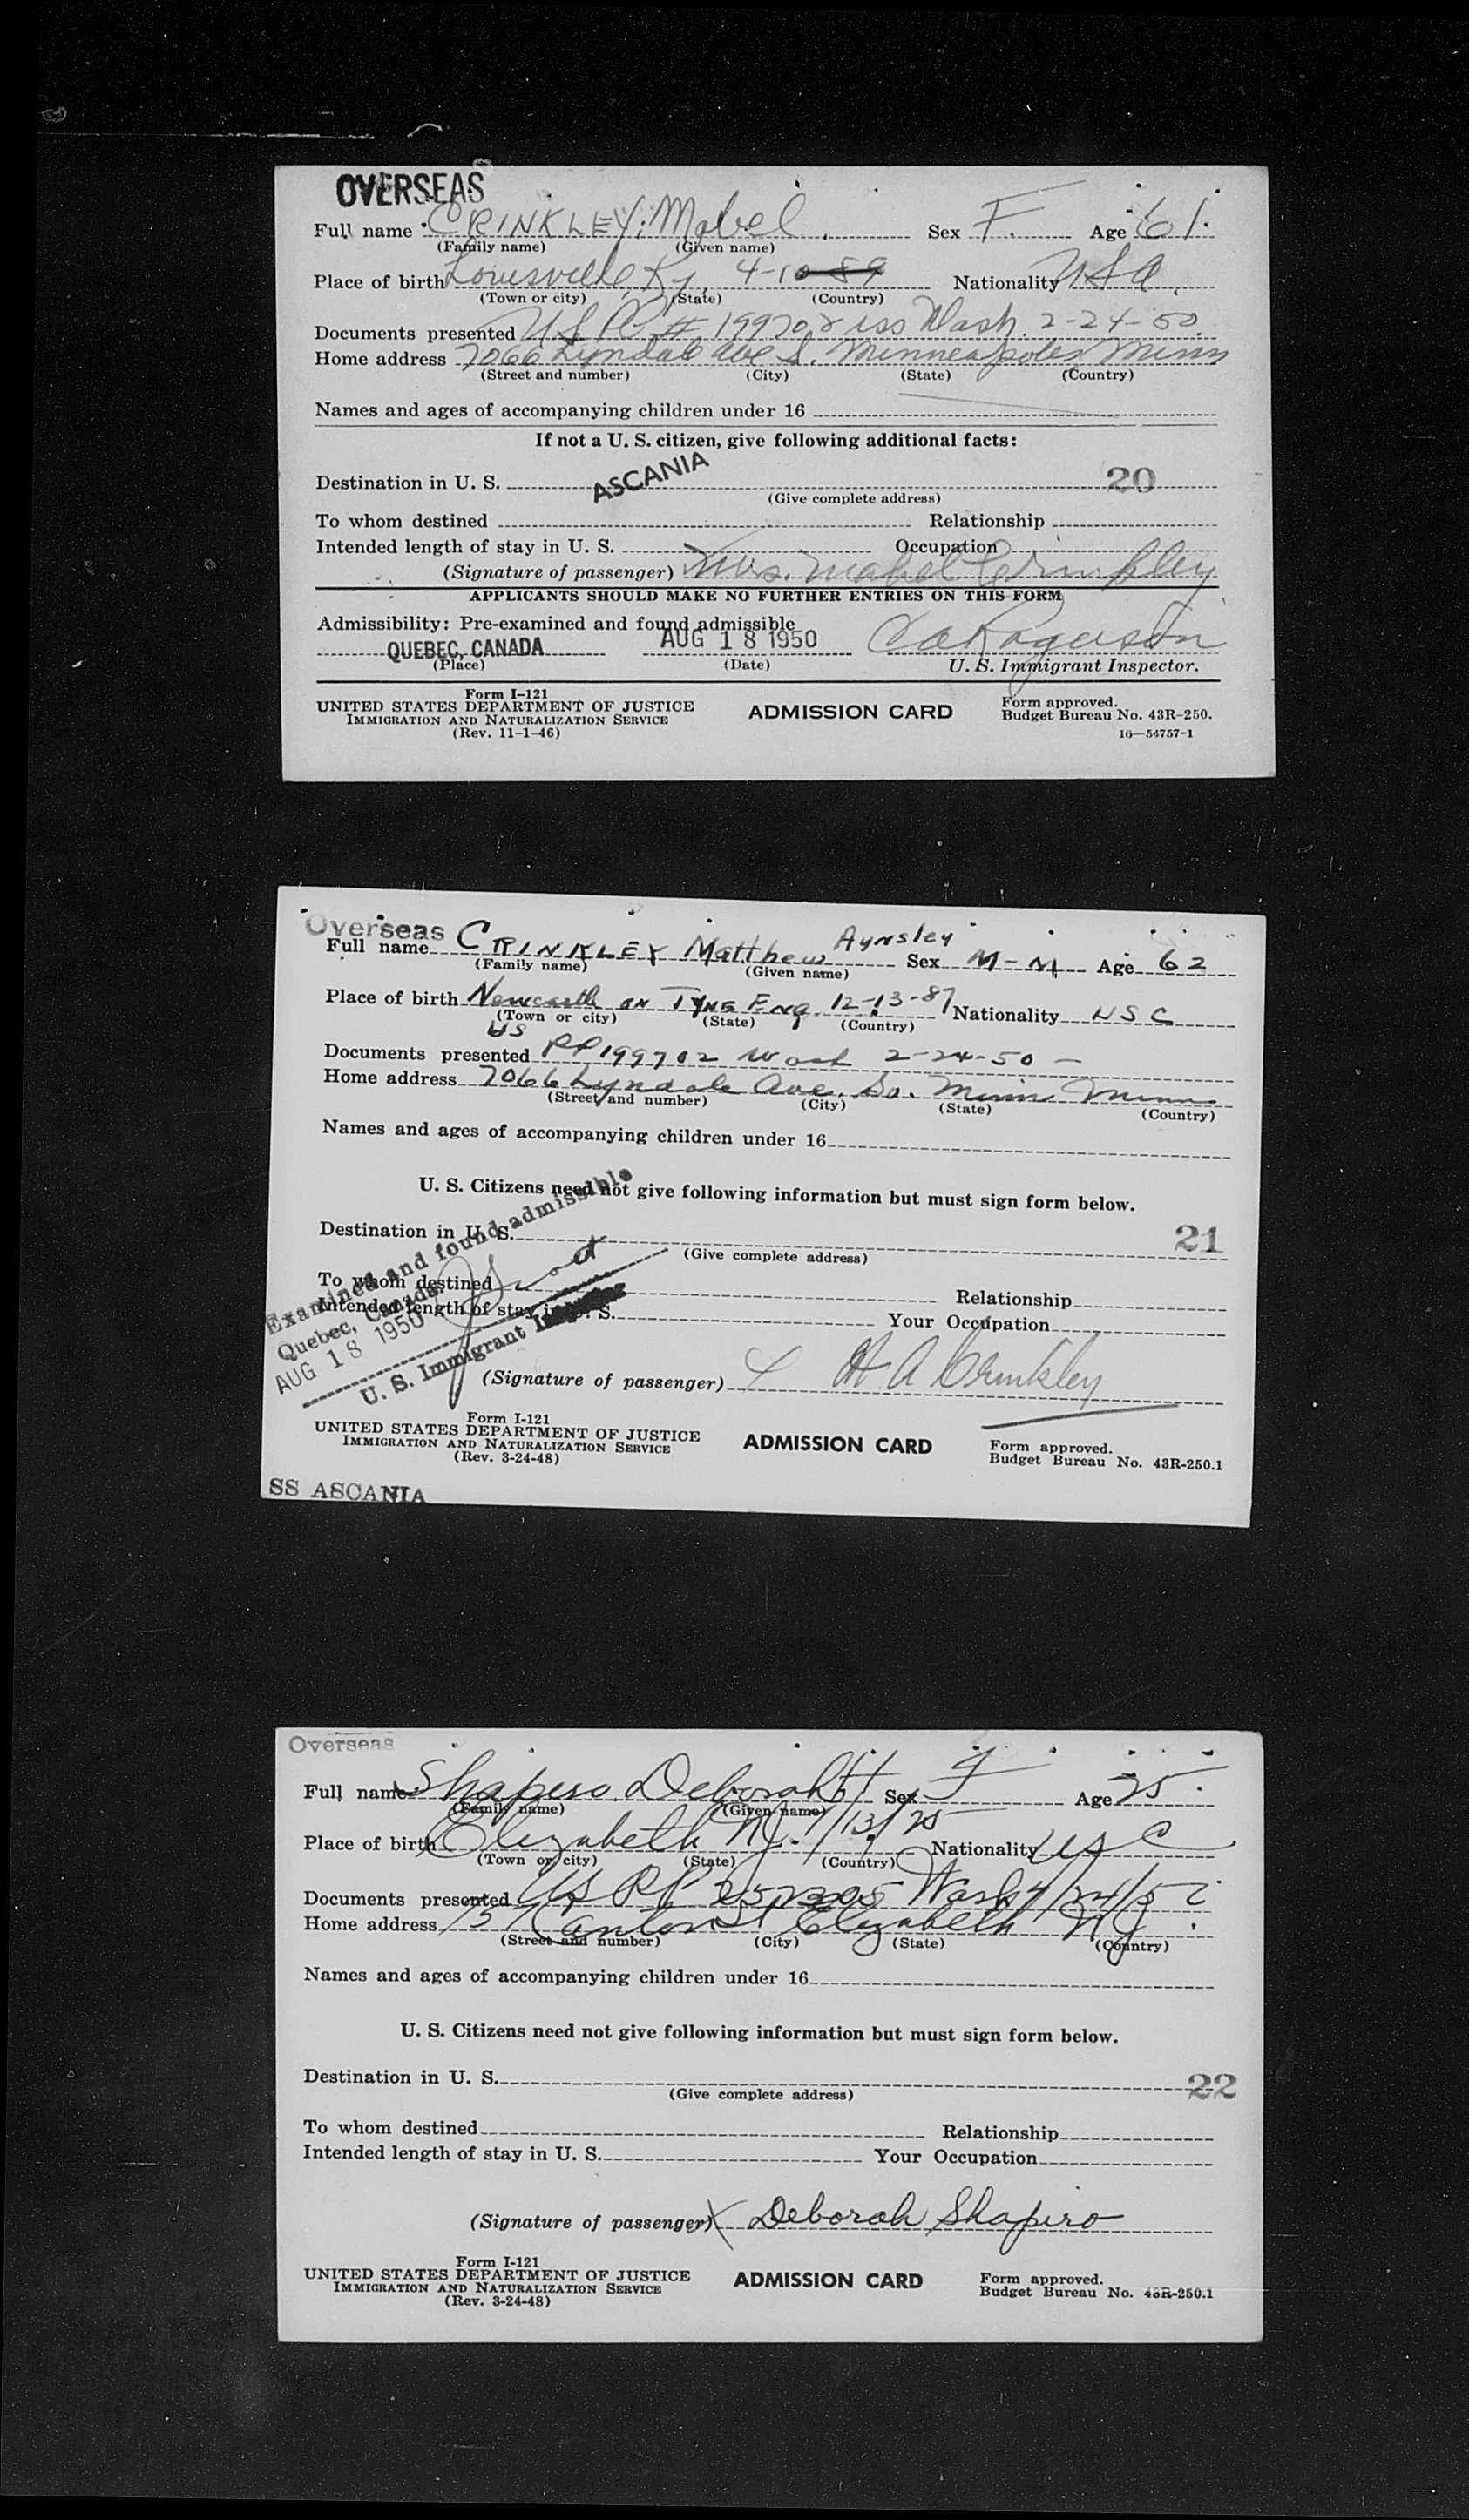 OVERSEAS
Full name CRINKLEY, Mabel Sex F. Age 61.
(Family name) (Given name)
Place of birth Louisville, Ky. 4-10-89 Nationality USA
(Town or city) (State) (Country)
Documents presented US PP # 199702 iss Wash. 2-24-50.
Home address 7066 Lyndale Ave S. Minneapolis Minn
(Street and number) (City) (State) (Country)
Names and ages of accompanying children under 16
If not a U. S. citizen, give following additional facts:
ASCANIA
Destination in U. S. 20
(Give complete address)
To whom destined Relationship
Intended length of stay in U. S. Occupation
(Signature of passenger) Mrs. Mabel Crinkley
APPLICANTS SHOULD MAKE NO FURTHER ENTRIES ON THIS FORM
Admissibility: Pre-examined and found admissible
QUEBEC, CANADA AUG 18 1950
(Place) (Date) U. S. Immigrant Inspector.
Form I-121
UNITED STATES DEPARTMENT OF JUSTICE
IMMIGRATION AND NATURALIZATION SERVICE
(Rev. 11-1-46)
ADMISSION CARD
Form approved.
Budget Bureau No. 43R-250.
16—54757-1
Overseas
Full name CRINKLEY Matthew Aynsley Sex M-M Age 62
(Family name) (Given name)
Place of birth Newcastle on Tyne Eng. 12-13-87 Nationality USC
(Town or city) (State) (Country)
US
Documents presented PP 199702 Wash 2-24-50 —
Home address 7066 Lyndale Ave. So. Minn Minn
(Street and number) (City) (State) (Country)
Names and ages of accompanying children under 16
U. S. Citizens need not give following information but must sign form below.
Destination in U. S. 21
(Give complete address)
To whom destined Relationship
Intended length of stay in U. S. Your Occupation
Examined and found admissible
Quebec, Canada.
AUG 18 1950
U. S. Immigrant Inspector
(Signature of passenger) M A Crinkley
Form I-121
UNITED STATES DEPARTMENT OF JUSTICE
IMMIGRATION AND NATURALIZATION SERVICE
(Rev. 3-24-48)
ADMISSION CARD
Form approved.
Budget Bureau No. 43R-250.1
SS ASCANIA
Overseas
Full name Shapiro Deborah Sex F Age 25
(Family name) (Given name)
Place of birth Elizabeth NJ. /13/25 Nationality USC
(Town or city) (State) (Country)
Documents presented US PP 252305 Wash 4/24/50
Home address Canton St Elizabeth NJ.
(Street and number) (City) (State) (Country)
Names and ages of accompanying children under 16
U. S. Citizens need not give following information but must sign form below.
Destination in U. S. 22
(Give complete address)
To whom destined Relationship
Intended length of stay in U. S. Your Occupation
(Signature of passenger) X Deborah Shapiro
Form I-121
UNITED STATES DEPARTMENT OF JUSTICE
IMMIGRATION AND NATURALIZATION SERVICE
(Rev. 3-24-48)
ADMISSION CARD
Form approved.
Budget Bureau No. 43R-250.1